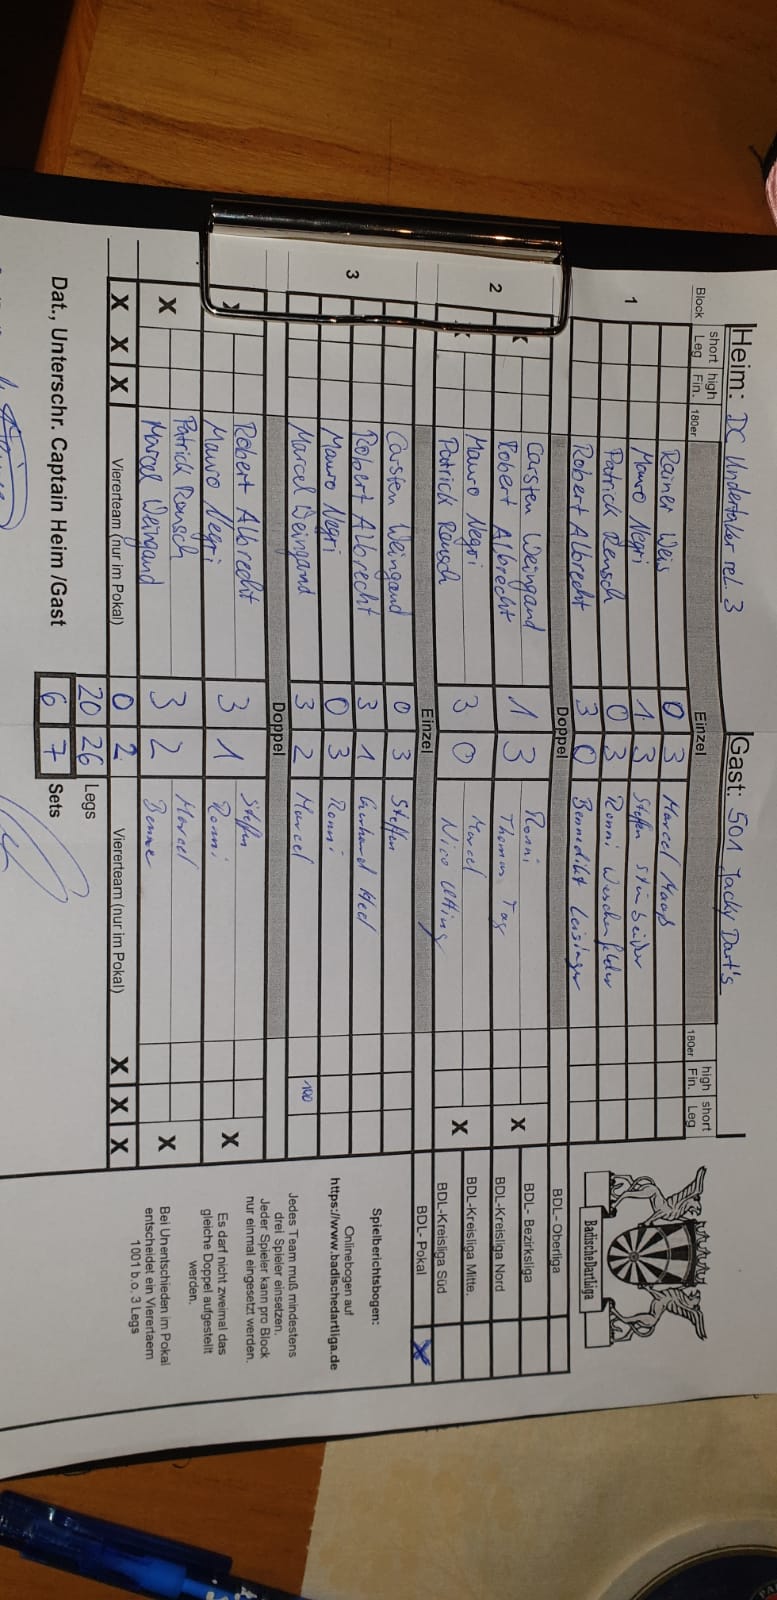 Heim: DC Undertaker rel. 3 Gast: 501 Jacky Dart's
Block short Leg high Fin. 180er Einzel 180er high Fin. short Leg
1
Rainer Weis 0 3 Marcel Maaß
Mauro Negri 1 3 Steffen
Patrick Rensch 0 3 Ronni
Robert Albrecht 3 0 Benedikt Leisinger
Doppel
2
Carsten Weingand Ronni
Robert Albrecht 1 3 Thomas Tag X
Mauro Negri Marcel
Patrick Rensch 3 0 Nico X
Einzel
3
Carsten Weingand 0 3 Steffen
Robert Albrecht 3 1
Mauro Negri 0 3 Ronni
Marcel Weingand 3 2 Marcel 100
Doppel
Robert Albrecht Steffen
Mauro Negri 3 1 Ronni X
Patrick Rensch Marcel
X Marcel Weingand 3 2 Benne X
X X X Viererteam (nur im Pokal) 0 2 Viererteam (nur im Pokal) X X X
20 26 Legs
Dat., Unterschr. Captain Heim /Gast 6 7 Sets
BadischeDartliga
BDL- Oberliga
BDL- Bezirksliga
BDL-Kreisliga Nord
BDL-Kreisliga Mitte.
BDL-Kreisliga Süd
BDL- Pokal X
Spielberichtsbogen:
Onlinebogen auf
https://www.badischedartliga.de
Jedes Team muß mindestens
drei Spieler einsetzen.
Jeder Spieler kann pro Block
nur einmal eingesetzt werden.
Es darf nicht zweimal das
gleiche Doppel aufgestellt
werden.
Bei Unentschieden im Pokal
entscheidet ein Vierertaem
1001 b.o. 3 Legs